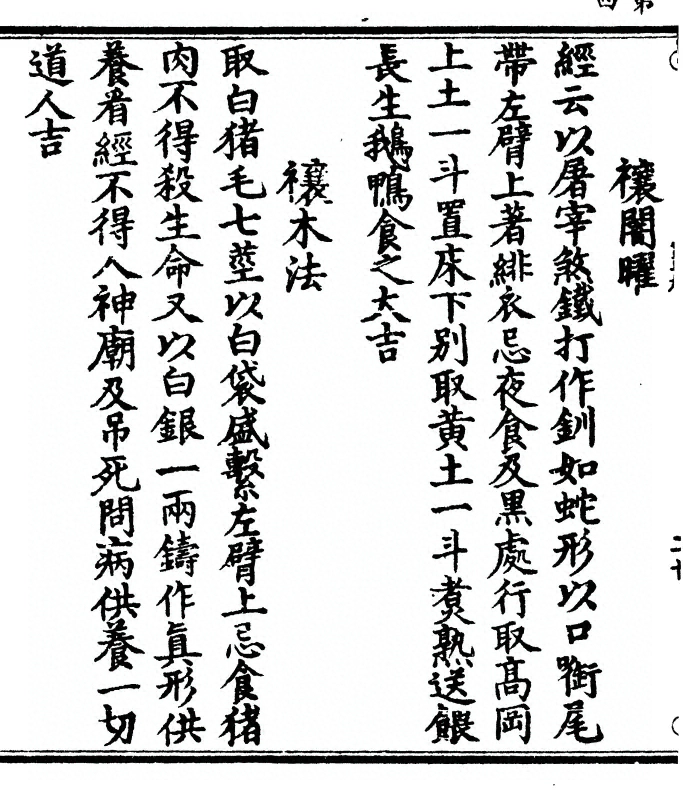 禳闇曜
經云以屠宰煞鐵打作釧如蛇形以口銜尾
帶左臂上著緋衣忌夜食及黑處行取髙岡
上土一斗置床下别取黃土一斗煑熟送餵
長生鵝鴨食之大吉
禳木法
取白猪毛七莖以白袋盛繫左臂上忌食猪
肉不得殺生命又以白銀一兩鑄作眞形供
養看經不得入神廟及吊死問病供養一切
道人吉